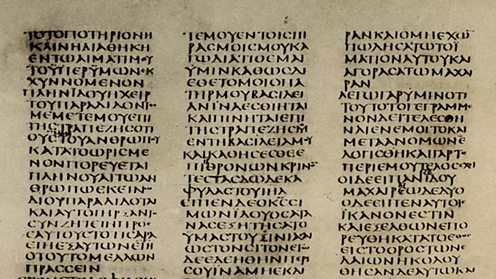 ΤΟΤΟΠΟΤΗΡΙΟΝΗ
ΚΑΙΝΗΔΙΑΘΗΚΗ
ΕΝΤΩΑΙΜΑΤΙΜΟΥ
ΤΟΥΠΕΡΥΜΩΝΕΚ
ΧΥΝΝΟΜΕΝΟΝ
ΠΛΗΝΙΔΟΥΗΧΕΙΡ
ΤΟΥΠΑΡΑΔΙΔΟΝΤΟϹ
ΜΕΜΕΤΕΜΟΥΕΠΙ
ΤΗϹΤΡΑΠΕΖΗϹΟΤΙ
ΚΑΤΑΤΟΩΡΙϹΜΕ
ΝΟΝΠΟΡΕΥΕΤΑΙ
ΠΛΗΝΟΥΑΙΤΩΑΝ
ΘΡΩΠΩΕΚΕΙΝΩ
ΔΙΟΥΠΑΡΑΔΙΔΟΤΑΙ
ΚΑΙΑΥΤΟΙΗΡΞΑΝΤΟ
ϹΥΖΗΤΕΙΝΠΡΟϹ
ΕΑΥΤΟΥϹΤΟΤΙϹΑΡΑ
ΟΤΟΥΤΟΜΕΛΛΩΝ
ΠΡΑϹϹΕΙΝ
ΤΕΜΟΥΕΝΤΟΙϹΠΙ
ΡΑϹΜΟΙϹΜΟΥΚΑ
ΓΩΔΙΑΤΙΘΕΜΑΙ
ΥΜΙΝΚΑΘΩϹΔΙ
ΕΘΕΤΟΜΟΙΟΠΑ
ΤΗΡΜΟΥΒΑϹΙΛΕΙ
ΑΝΙΝΑΕϹΘΗΤΑΙ
ΚΑΙΠΙΝΗΤΑΙΕΠΙ
ΤΗϹΤΡΑΠΕΖΗϹΜΟΥ
ΕΝΤΗΒΑϹΙΛΕΙΑΜΟΥ
ΚΑΙΚΑΘΗϹΕϹΘΕΕ
ΠΙΘΡΟΝΩΝΚΡΙΝΟ
ΤΕϹΤΑϹΔΩΔΕΚΑ
ΦΥΛΑϹΤΟΥΙΗΛ
ΕΙΠΕΝΔΕΟΚϹϹΙ
ΜΩΝΙΔΟΥΟϹΑΤΑ
ΝΑϹΕΞΗΤΗϹΑΤΟ
ΥΜΑϹΤΟΥϹΙΝΙΑϹΑΙ
ΩϹΤΟΝϹΙΤΟΝΕΓΩ
ΔΕΕΔΕΗΘΗΝΠΕΡΙ
ϹΟΥΙΝΑΜΗΕΚΛΙ
ΡΑΝΚΑΙΟΜΗΕΧΩΝ
ΠΩΛΗϹΑΤΩΤΟΙ
ΜΑΤΙΟΝΑΥΤΟΥΚΑΙ
ΑΓΟΡΑϹΑΤΩΜΑΧΑΙ
ΡΑΝ
ΛΕΓΩΓΑΡΥΜΙΝΟΤΙ
ΤΟΥΤΟΤΟΓΕΓΡΑΜΜΕ
ΝΟΝΔΕΙΤΕΛΕϹΘΗ
ΝΑΙΕΝΕΜΟΙΤΟΚΑΙ
ΜΕΤΑΑΝΟΜΩΝΕ
ΛΟΓΙϹΘΗΚΑΙΓΑΡΤΟ
ΠΕΡΙΕΜΟΥΤΕΛΟϹΕΧΙ
ΟΙΔΕΕΙΠΑΝΙΔΟΥ
ΜΑΧΑΙΡΑΙΩΔΕΔΥΟ
ΟΔΕΕΙΠΕΝΑΥΤΟΙϹ
ΙΚΑΝΟΝΕϹΤΙΝ
ΚΑΙΕΞΕΛΘΩΝΕΠΟ
ΡΕΥΘΗΚΑΤΑΤΟΕΘΟϹ
ΕΙϹΤΟΟΡΟϹΤΩΝΕ
ΛΑΙΩΝΗΚΟΛΟΥ
ΘΗϹΑΝΔΕΑΥΤΩ